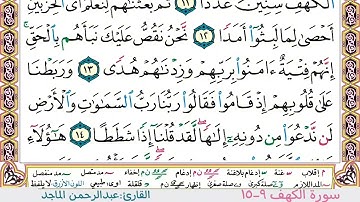 ٱلۡكَهۡفِ سِنِينَ عَدَدٗا ١١ ثُمَّ بَعَثۡنَٰهُمۡ لِنَعۡلَمَ أَيُّ ٱلۡحِزۡبَيۡنِ
أَحۡصَىٰ لِمَا لَبِثُوٓاْ أَمَدٗا ١٢ نَّحۡنُ نَقُصُّ عَلَيۡكَ نَبَأَهُم بِٱلۡحَقِّۚ
إِنَّهُمۡ فِتۡيَةٌ ءَامَنُواْ بِرَبِّهِمۡ وَزِدۡنَٰهُمۡ هُدٗى ١٣ وَرَبَطۡنَا
عَلَىٰ قُلُوبِهِمۡ إِذۡ قَامُواْ فَقَالُواْ رَبُّنَا رَبُّ ٱلسَّمَٰوَٰتِ وَٱلۡأَرۡضِ
لَن نَّدۡعُوَاْ مِن دُونِهِۦٓ إِلَٰهٗاۖ لَّقَدۡ قُلۡنَآ إِذٗا شَطَطًا ١٤ هَٰٓؤُلَآءِ
سورة الكهف ٩-١٥ القارئ: عبدالرحمن الماجد